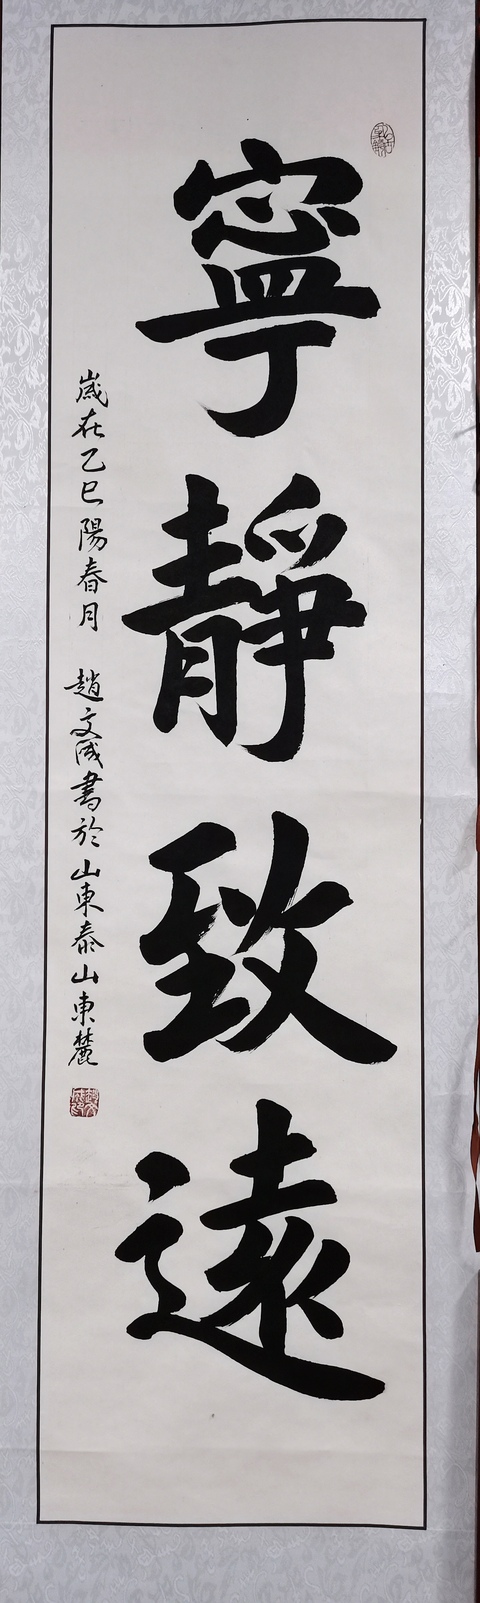 寧靜致遠
歲在乙巳陽春月 趙文成書於山東泰山東麓